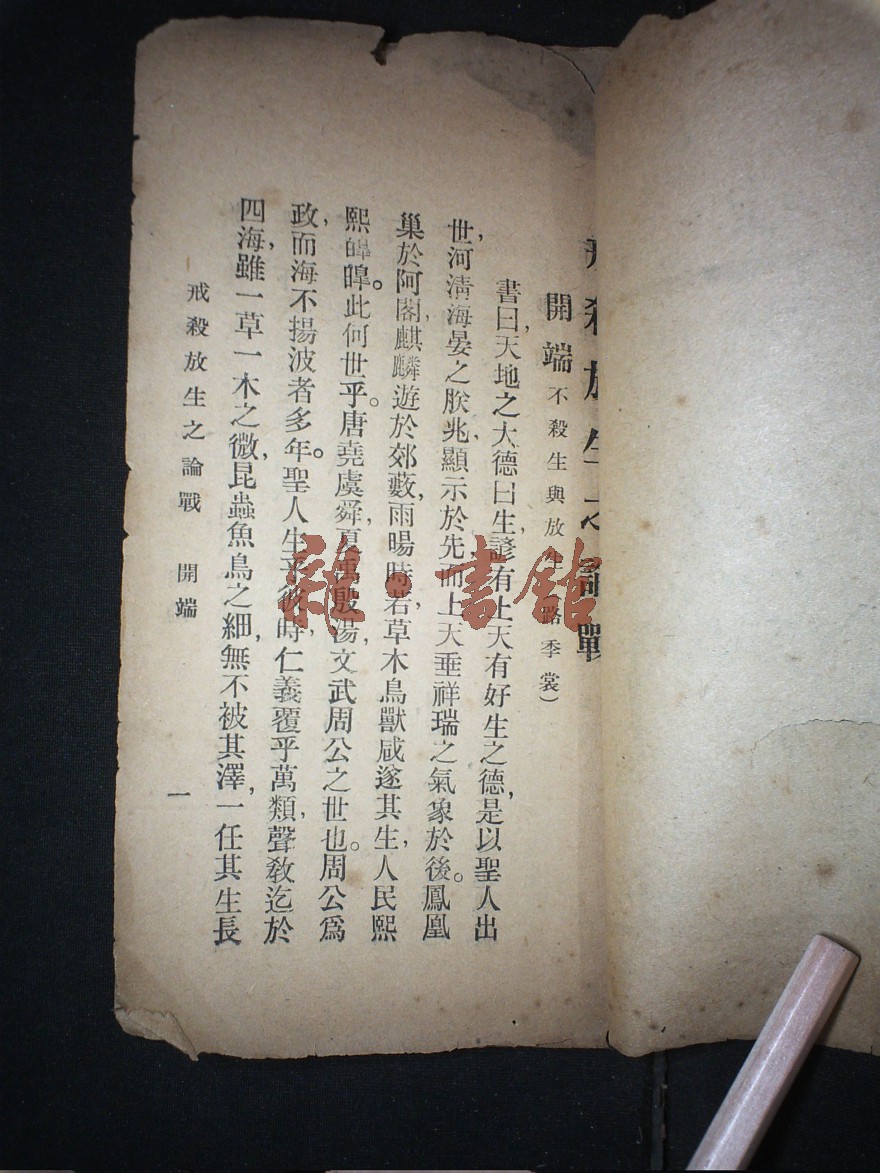 戒殺放生之論戰
開端 不殺生與放生 路季裳)
書曰,天地之大德曰生,諺有上天有好生之德,是以聖人出
世,河清海晏之朕兆,顯示於先,而上天垂祥瑞之氣象於後。鳳凰
巢於阿閣,麒麟遊於郊藪,雨暘時若,草木鳥獸咸遂其生,人民熙
熙皡皡。此何世乎。唐堯虞舜,夏禹殷湯,文武周公之世也。周公爲
政,而海不揚波者多年。聖人生乎彼時,仁義覆乎萬類,聲敎迄於
四海,雖一草一木之微,昆蟲魚鳥之細,無不被其澤,一任其生長
戒殺放生之論戰 開端
一
雜·書館